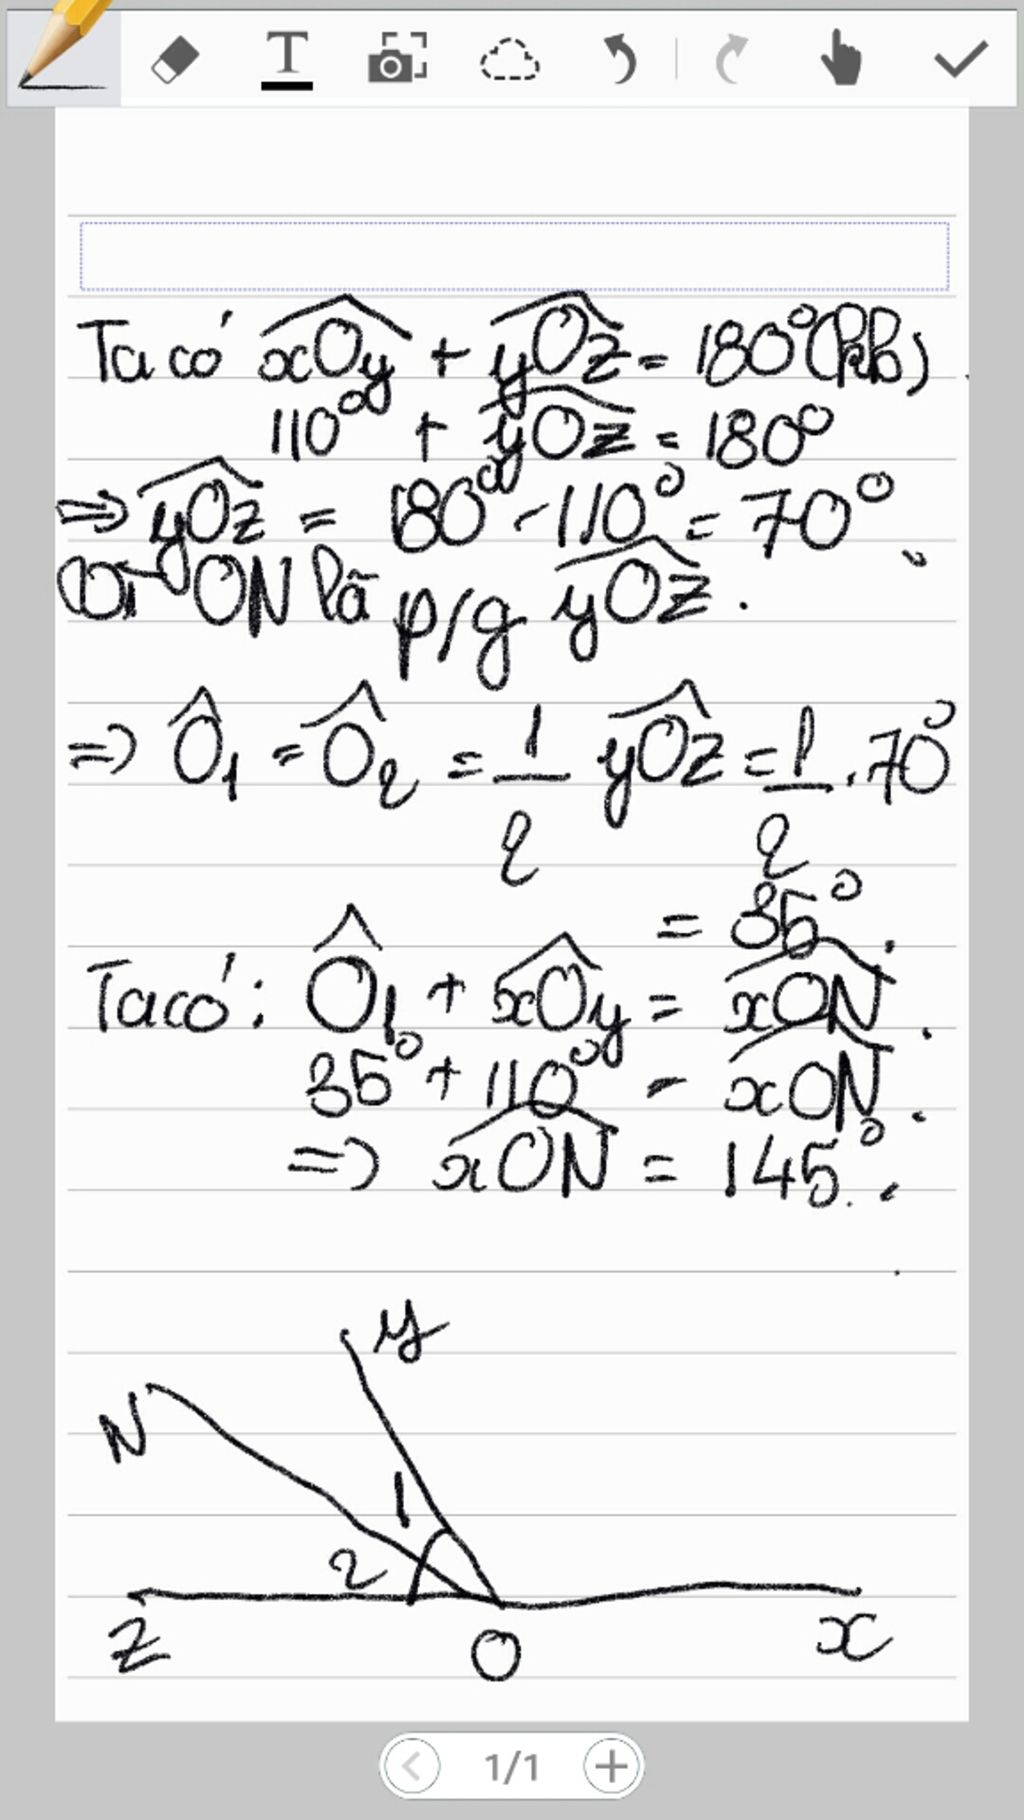 T
Ta có xOy + yOz = 180° (kb)
110° + yOz = 180°
=> yOz = 180° - 110° = 70°
ON là p/g yOz.
=> Ô1 = Ô2 = 1/2 yOz = 1/2 . 70°
= 35°.
Ta có: Ô1 + xOy = xON.
35° + 110° = xON.
=> xON = 145°.
y
N
1
2
z
O
x
1/1